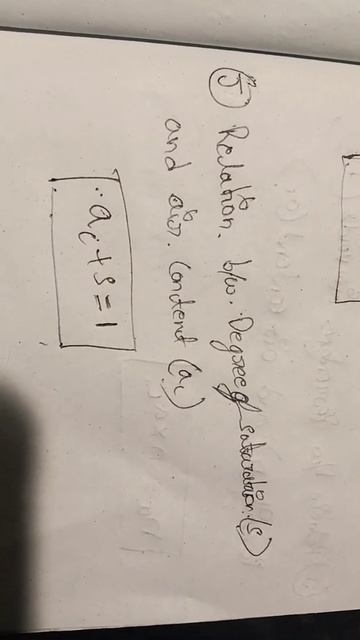 ⑤ Relation. b/w. Degree of saturation (s)
and air. Content (ac)
∴ ac + s = 1